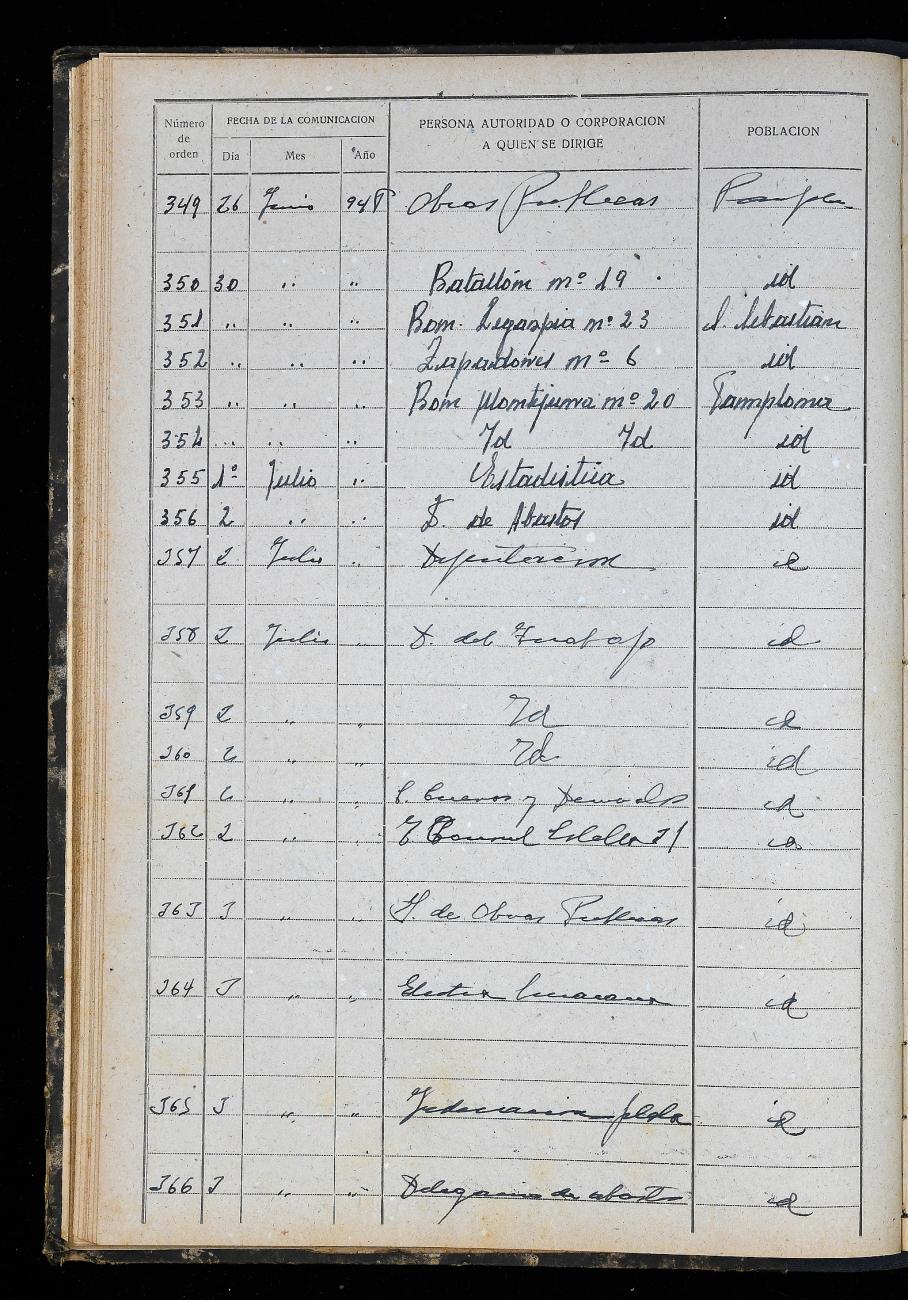 Número de orden FECHA DE LA COMUNICACION PERSONA AUTORIDAD O CORPORACION A QUIEN SE DIRIGE POBLACION
Dia Mes Año
349 26 Junio 948 Obras Publicas Pamplona
350 30 .. .. Batallón nº 19 id
351 .. .. .. Bom. Legazpia nº 23 S. Sebastian
352 .. .. .. Zapadores nº 6 id
353 .. .. .. Bom Montejurra nº 20 Pamplona
354 .. .. .. Id Id id
355 1º Julio .. Estadistica id
356 2 .. .. D. de Abastos id
357 2 Julio .. Diputacion id
358 2 Julio .. D. del Trabajo id
359 2 " " Id id
360 2 " " Id id
361 2 " " Cueros y id
362 2 " " id
363 3 " " de Obras Publicas id
364 3 " " Electra id
365 3 " " id
366 3 " " Delegacion de abastos id